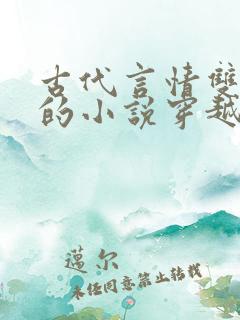 古代言情雙
的小說穿越
邁尔
未经同意禁止转载